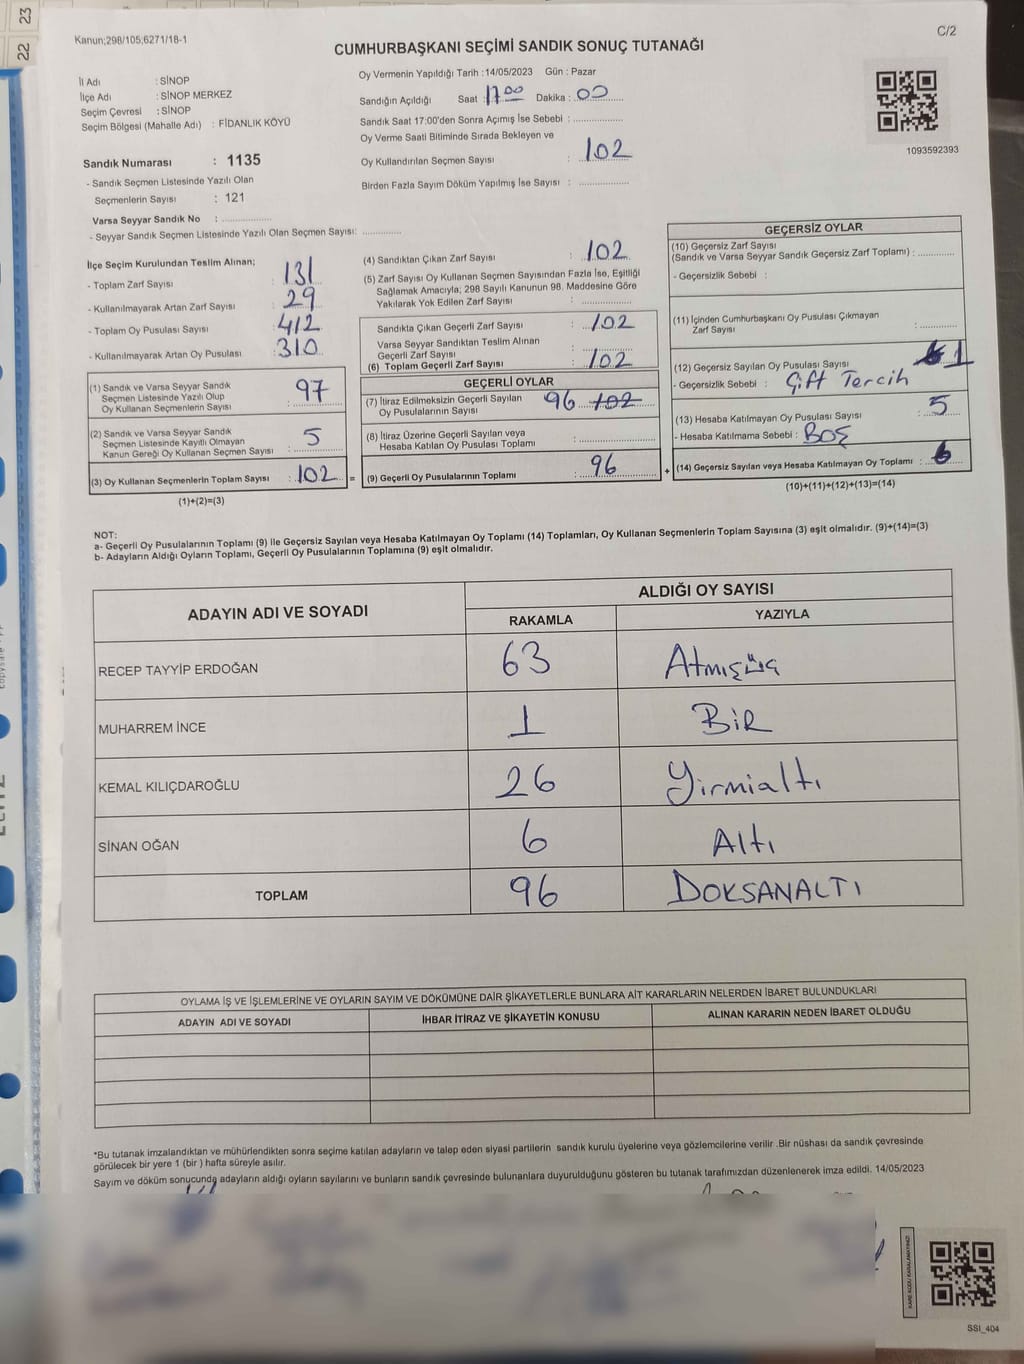 23
22
Kanun;298/105;6271/18-1
C/2
CUMHURBAŞKANI SEÇİMİ SANDIK SONUÇ TUTANAĞI
İl Adı : SİNOP
İlçe Adı : SİNOP MERKEZ
Seçim Çevresi : SİNOP
Seçim Bölgesi (Mahalle Adı) : FİDANLIK KÖYÜ
Sandık Numarası : 1135
- Sandık Seçmen Listesinde Yazılı Olan
Seçmenlerin Sayısı : 121
Varsa Seyyar Sandık No : ................
- Seyyar Sandık Seçmen Listesinde Yazılı Olan Seçmen Sayısı: ............
Oy Vermenin Yapıldığı Tarih :14/05/2023 Gün : Pazar
Sandığın Açıldığı Saat : 17 00 Dakika : 00
Sandık Saat 17:00'den Sonra Açımış İse Sebebi : ................
Oy Verme Saati Bitiminde Sırada Bekleyen ve
Oy Kullandırılan Seçmen Sayısı : 102
Birden Fazla Sayım Döküm Yapılmış İse Sayısı : ................
1093592393
İlçe Seçim Kurulundan Teslim Alınan;
- Toplam Zarf Sayısı : 131
- Kullanılmayarak Artan Zarf Sayısı : 29
- Toplam Oy Pusulası Sayısı : 412
- Kullanılmayarak Artan Oy Pusulası : 310
(1) Sandık ve Varsa Seyyar Sandık
Seçmen Listesinde Yazılı Olup
Oy Kullanan Seçmenlerin Sayısı : 97
(2) Sandık ve Varsa Seyyar Sandık
Seçmen Listesinde Kayıtlı Olmayan
Kanun Gereği Oy Kullanan Seçmen Sayısı : 5
(3) Oy Kullanan Seçmenlerin Toplam Sayısı : 102 =
(1)+(2)=(3)
(4) Sandıktan Çıkan Zarf Sayısı : 102
(5) Zarf Sayısı Oy Kullanan Seçmen Sayısından Fazla İse, Eşitliği
Sağlamak Amacıyla; 298 Sayılı Kanunun 98. Maddesine Göre
Yakılarak Yok Edilen Zarf Sayısı : ................
Sandıkta Çıkan Geçerli Zarf Sayısı : 102
Varsa Seyyar Sandıktan Teslim Alınan
Geçerli Zarf Sayısı : ................
(6) Toplam Geçerli Zarf Sayısı : 102
GEÇERLİ OYLAR
(7) İtiraz Edilmeksizin Geçerli Sayılan
Oy Pusulalarının Sayısı 96 102
(8) İtiraz Üzerine Geçerli Sayılan veya
Hesaba Katılan Oy Pusulası Toplamı : ................
(9) Geçerli Oy Pusulalarının Toplamı : 96 +
GEÇERSİZ OYLAR
(10) Geçersiz Zarf Sayısı
(Sandık ve Varsa Seyyar Sandık Geçersiz Zarf Toplamı) : ............
- Geçersizlik Sebebi :
(11) İçinden Cumhurbaşkanı Oy Pusulası Çıkmayan
Zarf Sayısı : ............
(12) Geçersiz Sayılan Oy Pusulası Sayısı 1
- Geçersizlik Sebebi : Çift Tercih
(13) Hesaba Katılmayan Oy Pusulası Sayısı : 5
- Hesaba Katılmama Sebebi : BOŞ
(14) Geçersiz Sayılan veya Hesaba Katılmayan Oy Toplamı : 6
(10)+(11)+(12)+(13)=(14)
NOT:
a- Geçerli Oy Pusulalarının Toplamı (9) İle Geçersiz Sayılan veya Hesaba Katılmayan Oy Toplamı (14) Toplamları, Oy Kullanan Seçmenlerin Toplam Sayısına (3) eşit olmalıdır. (9)+(14)=(3)
b- Adayların Aldığı Oyların Toplamı, Geçerli Oy Pusulalarının Toplamına (9) eşit olmalıdır.
ADAYIN ADI VE SOYADI
ALDIĞI OY SAYISI
RAKAMLA YAZIYLA
RECEP TAYYİP ERDOĞAN 63 Atmışüç
MUHARREM İNCE 1 BİR
KEMAL KILIÇDAROĞLU 26 Yirmialtı
SİNAN OĞAN 6 Altı
TOPLAM 96 DOKSANALTI
OYLAMA İŞ VE İŞLEMLERİNE VE OYLARIN SAYIM VE DÖKÜMÜNE DAİR ŞİKAYETLERLE BUNLARA AİT KARARLARIN NELERDEN İBARET BULUNDUKLARI
ADAYIN ADI VE SOYADI İHBAR İTİRAZ VE ŞİKAYETİN KONUSU ALINAN KARARIN NEDEN İBARET OLDUĞU
*Bu tutanak imzalandıktan ve mühürlendikten sonra seçime katılan adayların ve talep eden siyasi partilerin sandık kurulu üyelerine veya gözlemcilerine verilir .Bir nüshası da sandık çevresinde
görülecek bir yere 1 (bir ) hafta süreyle asılır.
Sayım ve döküm sonucunda adayların aldığı oyların sayılarını ve bunların sandık çevresinde bulunanlara duyurulduğunu gösteren bu tutanak tarafımızdan düzenlenerek imza edildi. 14/05/2023
KARE KODU KARALAMAYINIZ!
SSI_404